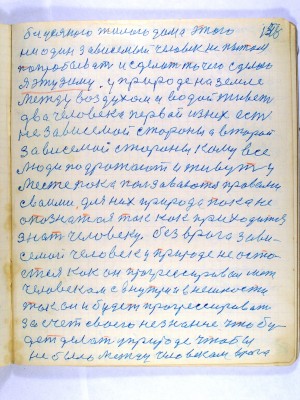 126
бидуяного жилого дома этого
ни один зависемый человек не пытал
попробывать и сделат то чего сделано
я этудиму. у природе на земле
между воздухом и водой живет
два человека первой из них есть
независемой стороны а второй
зависемой стороны кому все
люди подрожают и живут у
месте пока ползавоются правами
своими, для них природа пока не
опознатоя так как приходится
знат человеку, без врага зави-
семой человек у природе не осто-
ется как он прогрессировал меж
человеком с внутри и внешности
так он и будет прогрессироват
за счет своего незнание что бу-
дет делат у природе чтобы
не было между человеком врага